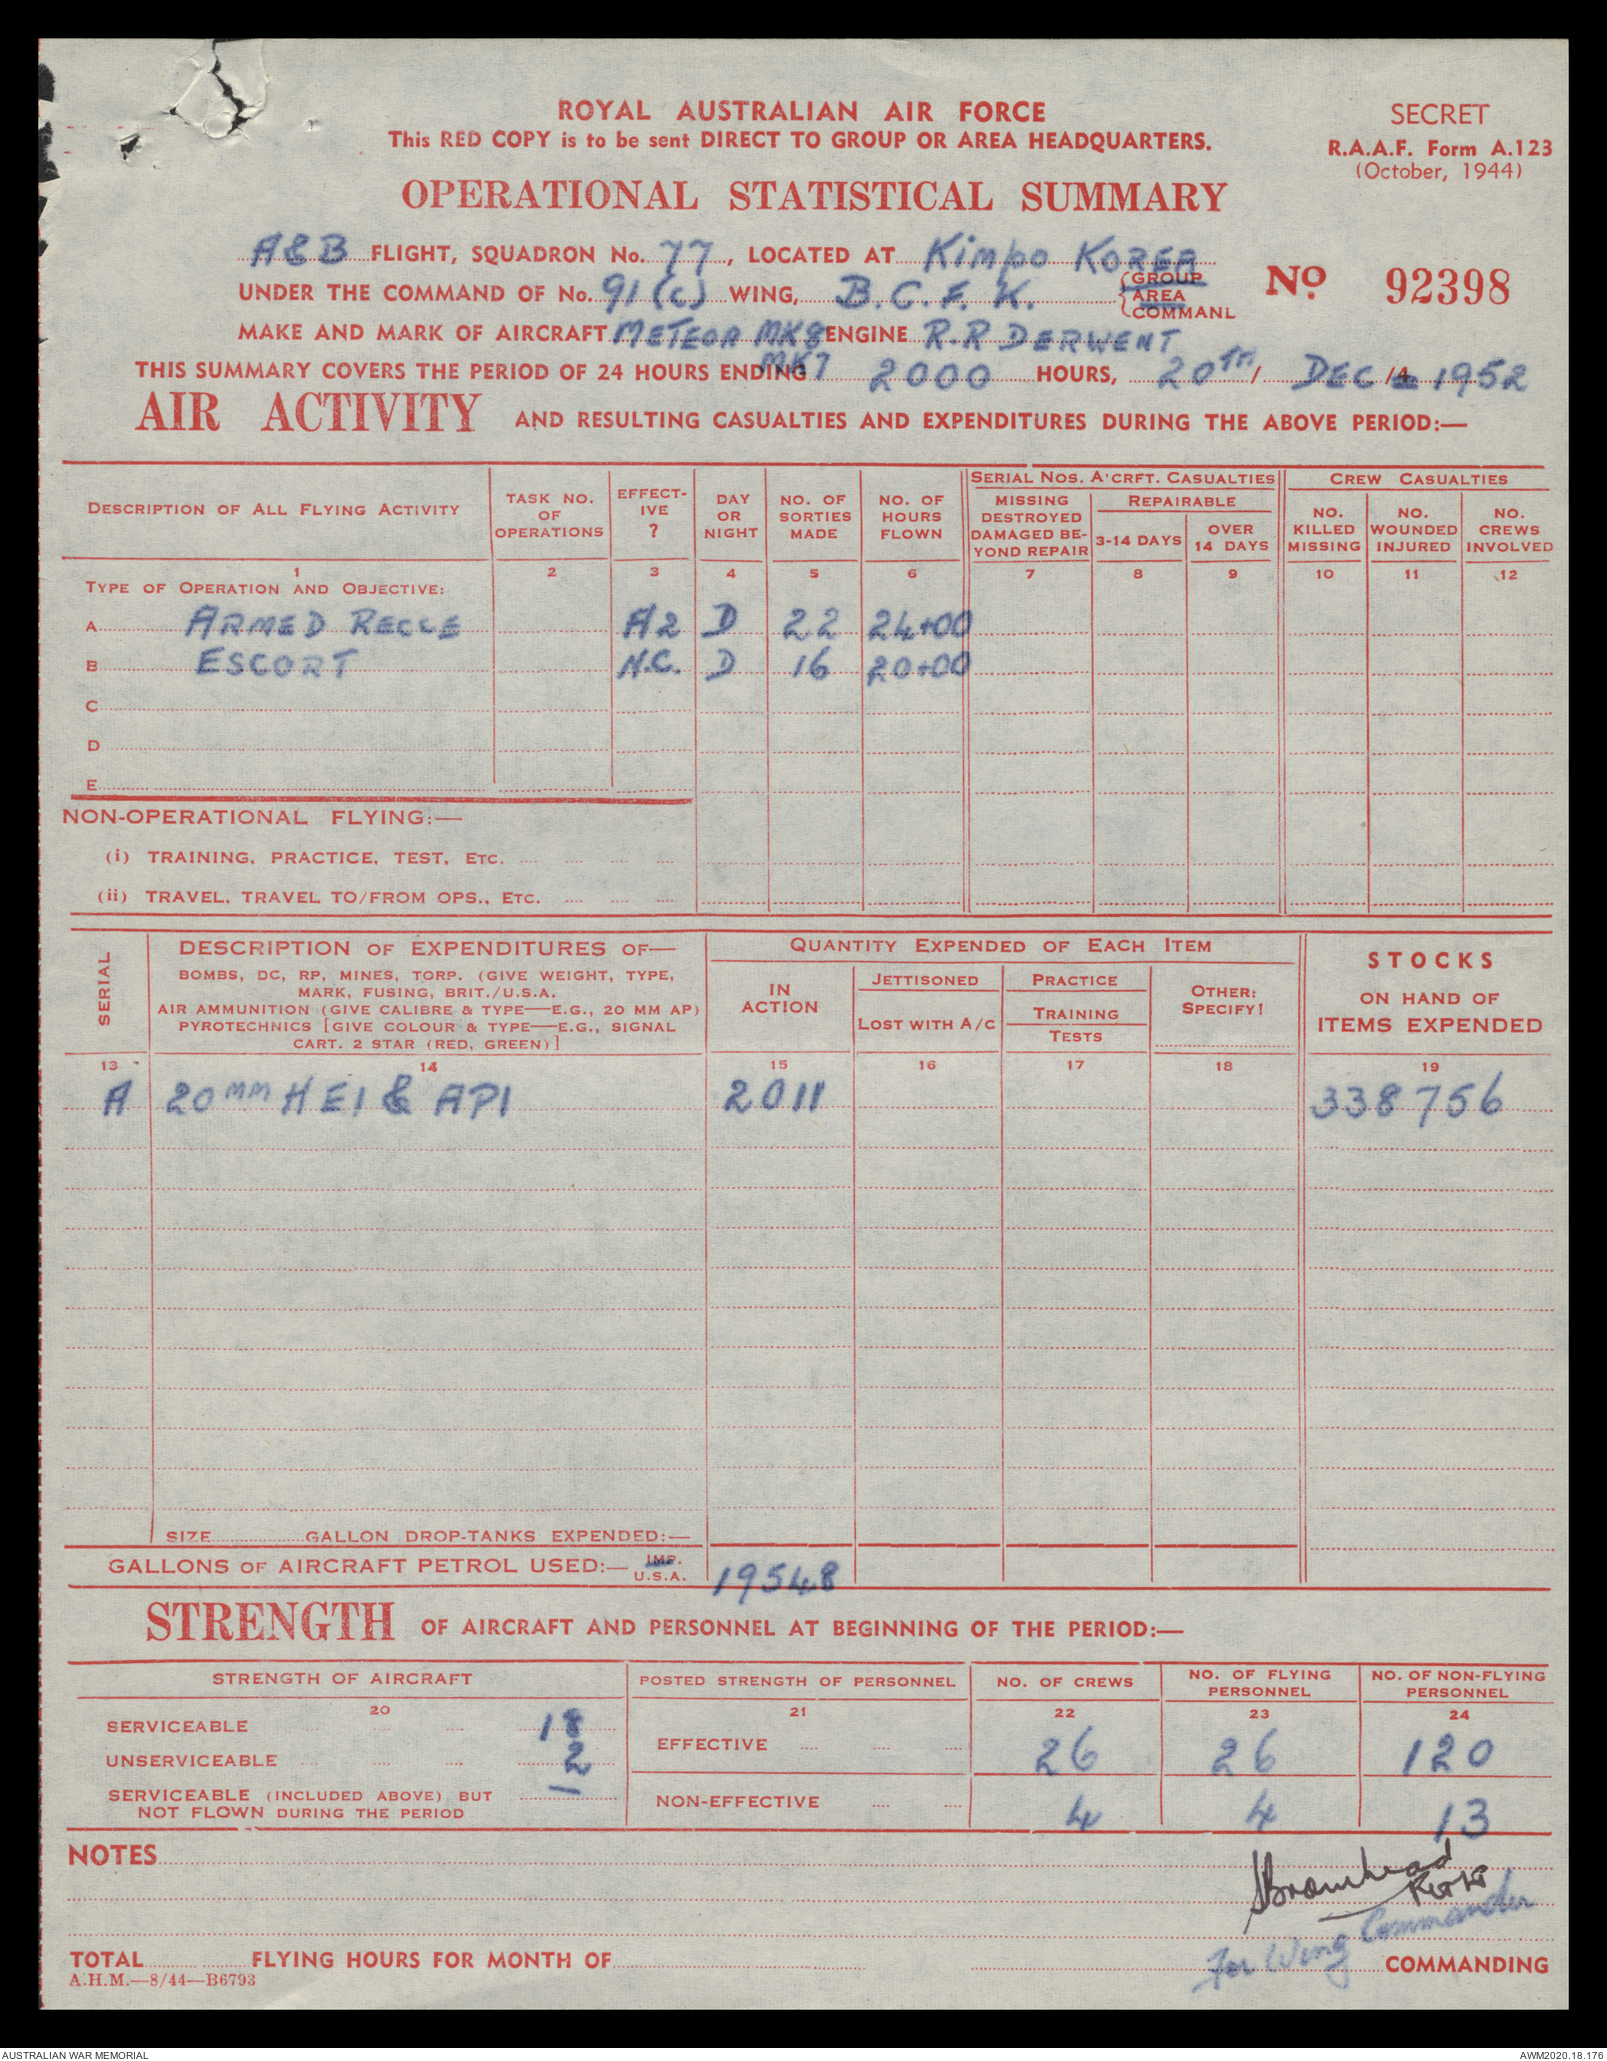 ROYAL AUSTRALIAN AIR FORCE
This RED COPY is to be sent DIRECT TO GROUP OR AREA HEADQUARTERS.
SECRET
R.A.A.F. Form A.123
(October, 1944)
OPERATIONAL STATISTICAL SUMMARY
A&B FLIGHT, SQUADRON No. 77, LOCATED AT Kimpo KOREA
UNDER THE COMMAND OF No. 91 (c) WING, B.C.F.K. GROUP AREA COMMANL
No 92398
MAKE AND MARK OF AIRCRAFT METEOR MK8 ENGINE R.R DERWENT
MK7
THIS SUMMARY COVERS THE PERIOD OF 24 HOURS ENDING 2000 HOURS, 20TH / DEC /4 1952
AIR ACTIVITY AND RESULTING CASUALTIES AND EXPENDITURES DURING THE ABOVE PERIOD:—
DESCRIPTION OF ALL FLYING ACTIVITY
TASK NO. OF OPERATIONS
EFFECT-IVE ?
DAY OR NIGHT
NO. OF SORTIES MADE
NO. OF HOURS FLOWN
SERIAL NOS. A'CRFT. CASUALTIES
MISSING DESTROYED DAMAGED BE-YOND REPAIR
REPAIRABLE
3-14 DAYS
OVER 14 DAYS
CREW CASUALTIES
NO. KILLED MISSING
NO. WOUNDED INJURED
NO. CREWS INVOLVED
1 2 3 4 5 6 7 8 9 10 11 12
TYPE OF OPERATION AND OBJECTIVE:
A ARMED RECCE A2 D 22 24+00
B ESCORT N.C. D 16 20+00
C
D
E
NON-OPERATIONAL FLYING:—
(i) TRAINING, PRACTICE, TEST, ETC.
(ii) TRAVEL, TRAVEL TO/FROM OPS., ETC.
SERIAL
DESCRIPTION OF EXPENDITURES OF—
BOMBS, DC, RP, MINES, TORP. (GIVE WEIGHT, TYPE,
MARK, FUSING, BRIT./U.S.A.
AIR AMMUNITION (GIVE CALIBRE & TYPE—E.G., 20 MM AP)
PYROTECHNICS [GIVE COLOUR & TYPE—E.G., SIGNAL
CART. 2 STAR (RED, GREEN)]
QUANTITY EXPENDED OF EACH ITEM
IN ACTION
JETTISONED
LOST WITH A/C
PRACTICE
TRAINING
TESTS
OTHER: SPECIFY!
STOCKS
ON HAND OF
ITEMS EXPENDED
13 14 15 16 17 18 19
A 20MM HEI & API 2011 338756
SIZE GALLON DROP-TANKS EXPENDED:—
GALLONS OF AIRCRAFT PETROL USED:— IMP. U.S.A. 19548
STRENGTH OF AIRCRAFT AND PERSONNEL AT BEGINNING OF THE PERIOD:—
STRENGTH OF AIRCRAFT
POSTED STRENGTH OF PERSONNEL
NO. OF CREWS
NO. OF FLYING PERSONNEL
NO. OF NON-FLYING PERSONNEL
20 21 22 23 24
SERVICEABLE 18
UNSERVICEABLE 2
SERVICEABLE (INCLUDED ABOVE) BUT NOT FLOWN DURING THE PERIOD —
EFFECTIVE 26 26 120
NON-EFFECTIVE 4 4 13
NOTES
Bromhead
For Wing Commander
TOTAL FLYING HOURS FOR MONTH OF COMMANDING
A.H.M.—8/44—B6793
AUSTRALIAN WAR MEMORIAL
AWM2020.18.176